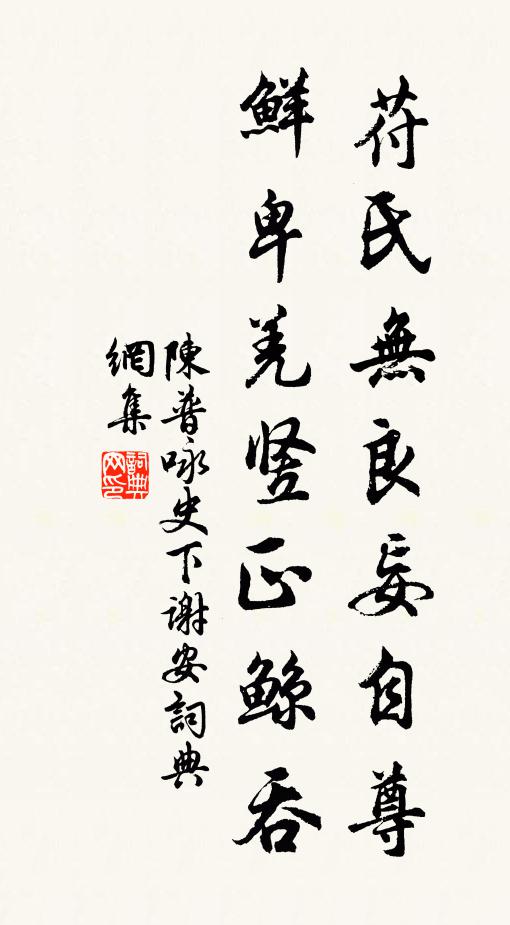 苻氏無良妄自尊
鮮卑羌竖正鲸吞
陳普咏史下謝安詞典
網集
詞典网印